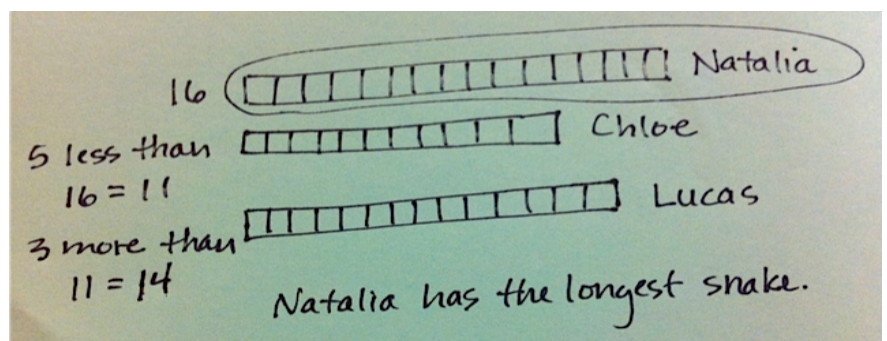 16 Natalia
5 less than
16 = 11
Chloe
3 more than
11 = 14
Lucas
Natalia has the longest snake.